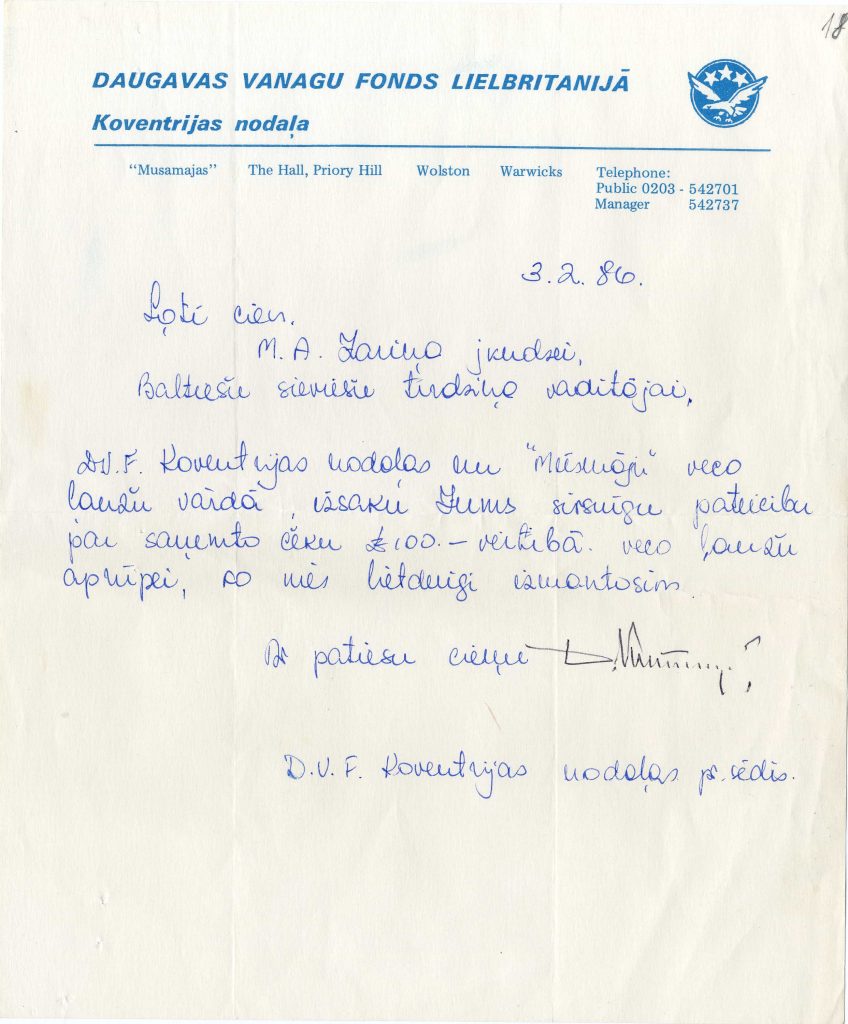 18
DAUGAVAS VANAGU FONDS LIELBRITANIJĀ
Koventrijas nodaļa
"Musamajas" The Hall, Priory Hill Wolston Warwicks Telephone:
Public 0203 - 542701
Manager 542737
3.2.86.
Ļoti cien.
M. A. Zariņa jkundzei,
Baltiešu sieviešu tirdziņa vadītājai,
D.V.F. Koventrijas nodaļas un "Mūsmāju" veco
ļaužu vārdā, izsaku Jums sirsnīgu pateicību
par saņemto čeku £100.— vērtībā. veco ļaužu
aprūpei, ko mēs lietderīgi izmantosim.
Ar patiesu cieņu
D.V.F. Koventrijas nodaļas pr.sēdis.